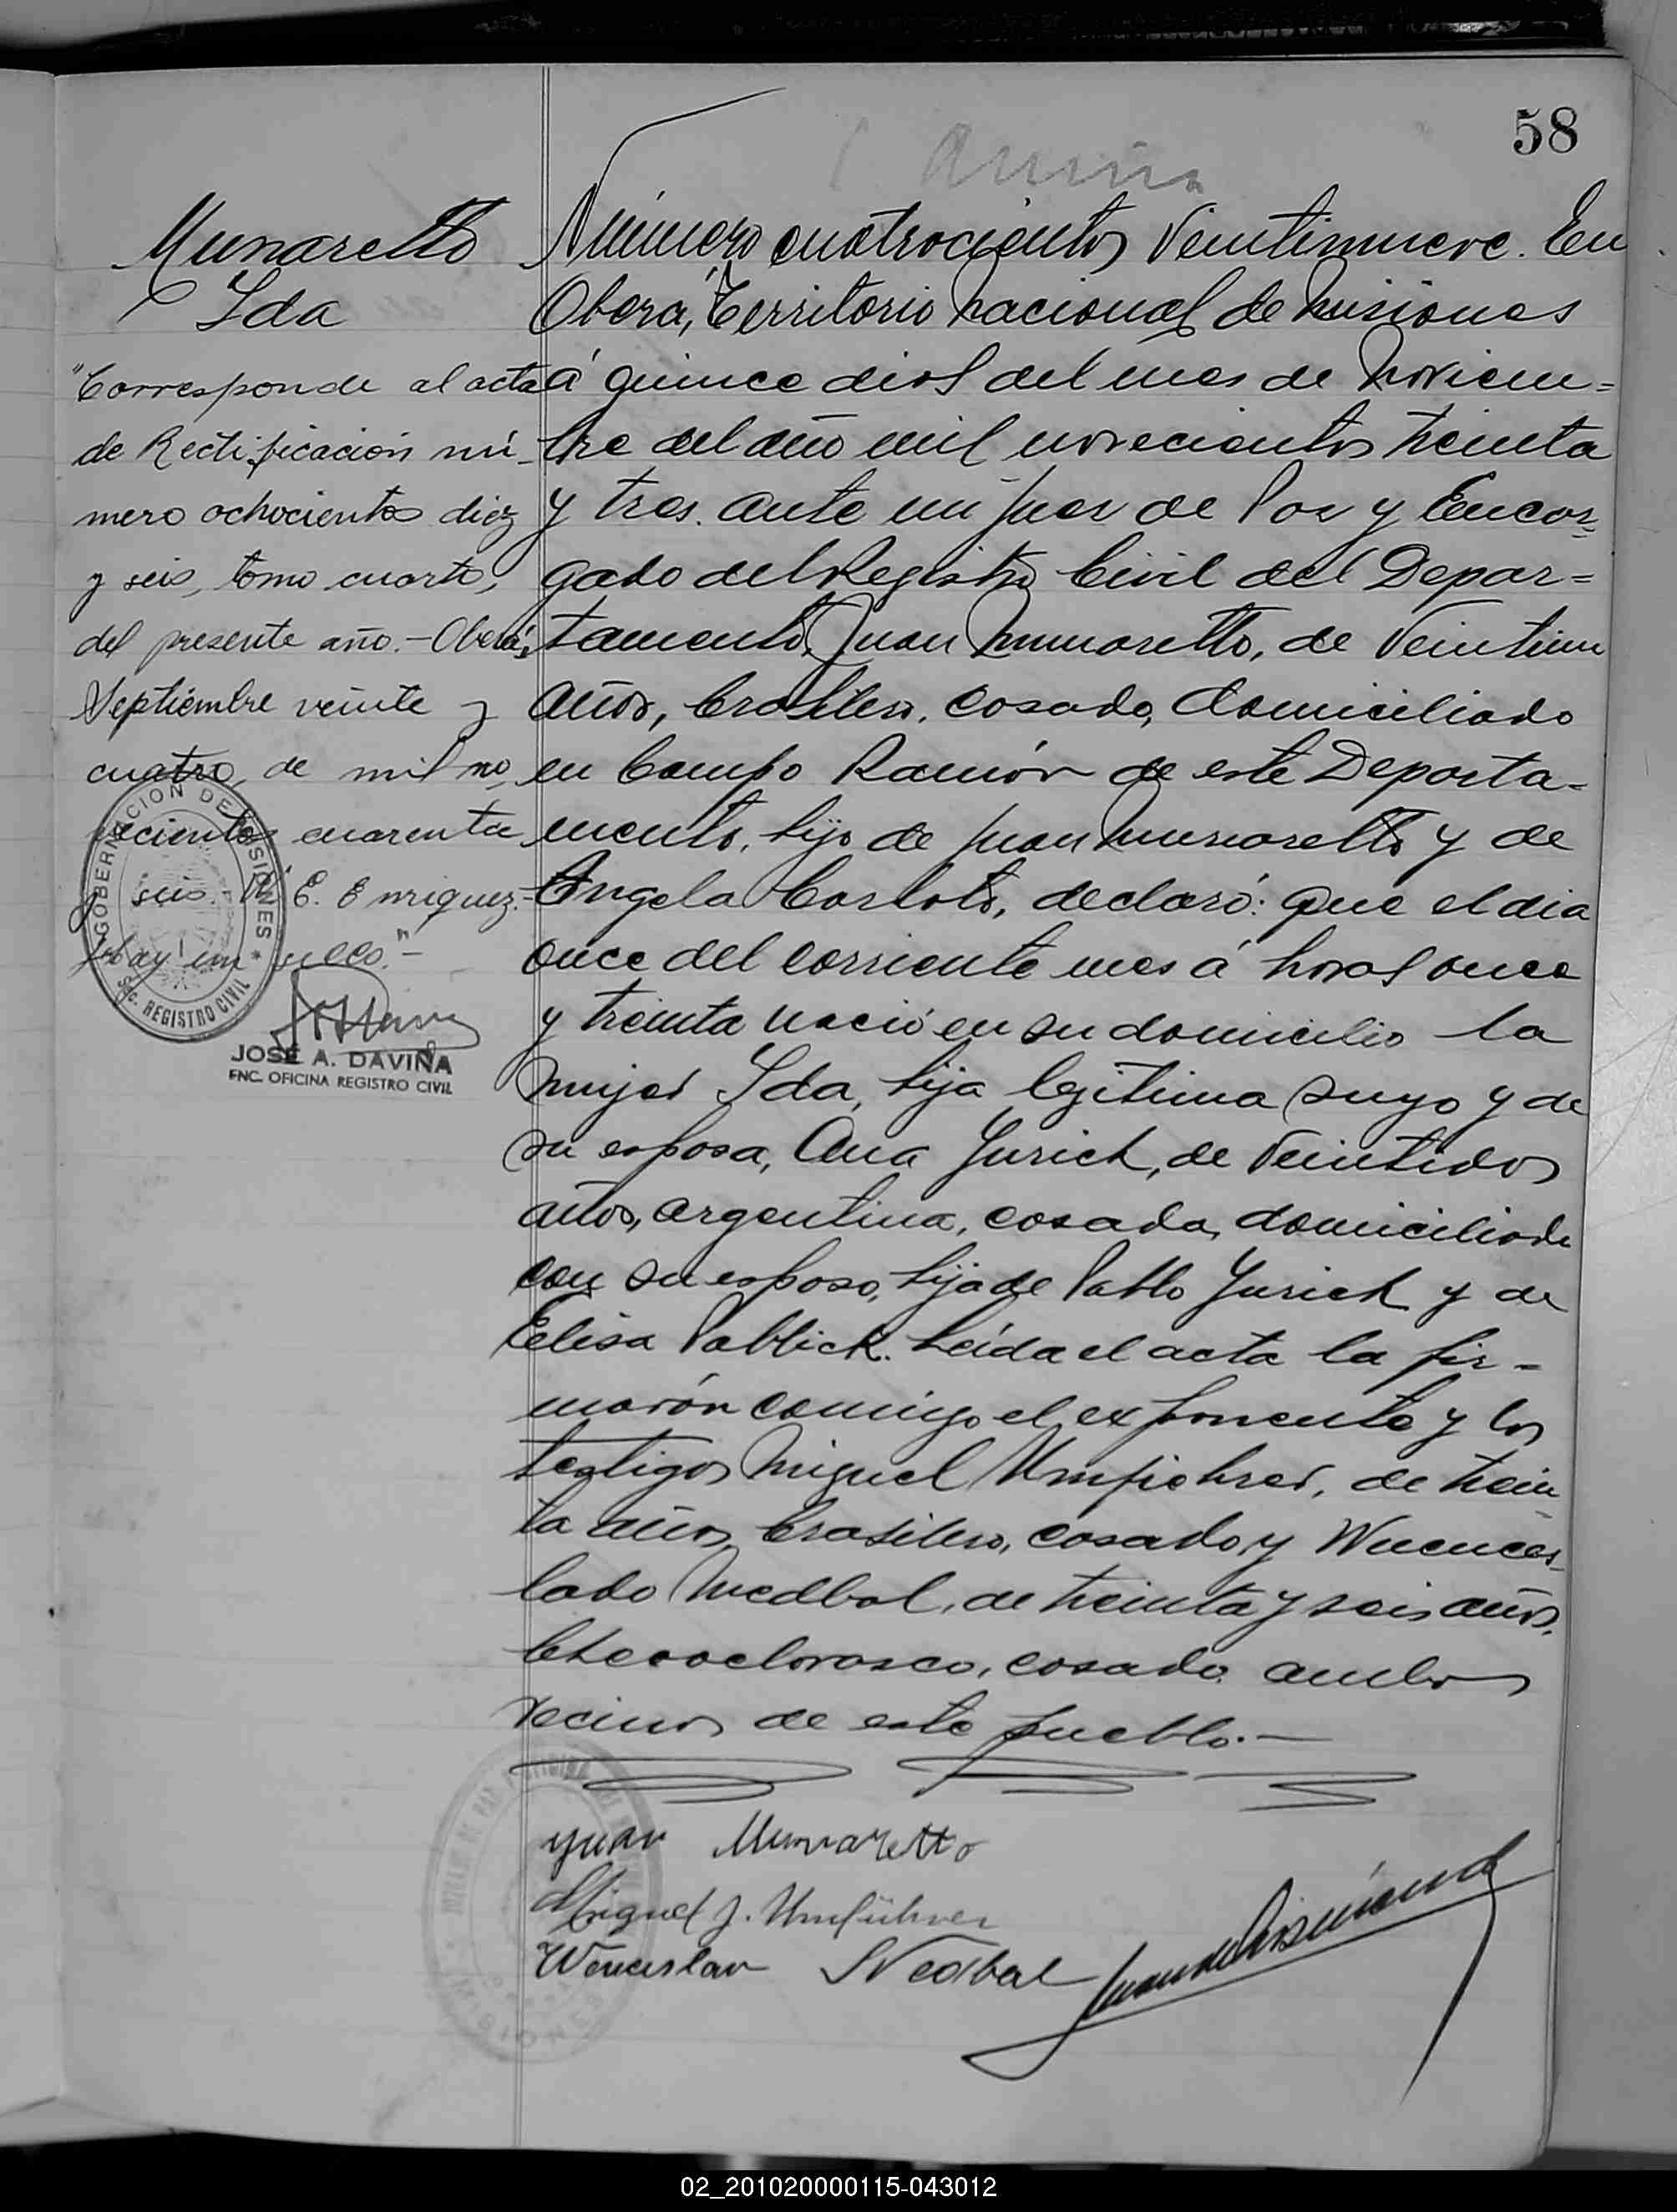 58
Munaretto
Ida
"Corresponde al acta
de Rectificación nú-
mero ochocientos diez
y seis, tomo cuarto,
del presente año.- Oberá,
Septiembre veinte y
cuatro, de mil no-
vecientos cuarenta
y seis. E. Enriquez.-
hay un sello."-
GOBERNACION DE MISIONES
REGISTRO CIVIL
JOSÉ A. DAVIÑA
ENC. OFICINA REGISTRO CIVIL
Número cuatrocientos veintinueve. En
Obera, Territorio Nacional de Misiones
á quince dias del mes de Noviem=
bre del año mil novecientos treinta
y tres. ante mi Juez de Paz y Encar=
gado del Registro Civil del Depar=
tamento, Juan Munaretto, de veintiun
años, brasilero, casado, domiciliado
en Campo Ramón de este Departa-
mento, hijo de Juan Munaretto y de
Angela Carloto, declaró: que el dia
once del corriente mes á horas once
y treinta nació en su domicilio la
mujer Ida, hija legitima suya y de
su esposa, Ana Jurich, de veintidos
años, argentina, casada, domiciliada
con su esposo, hija de Pablo Jurich y de
Elisa Pablick. Leida el acta la fir-
marón comigo el exponente y los
testigos Miguel Umfiehrer, de trein
ta años, brasilero, casado, y Wuences-
lado Nedbal, de treinta y seis años,
checoeslovasco, casado. ambos
vecinos de este pueblo.-
Juan Munaretto
Miguel J. Umführer
Wenceslav Nedbal
MISIONES
02_201020000115-043012